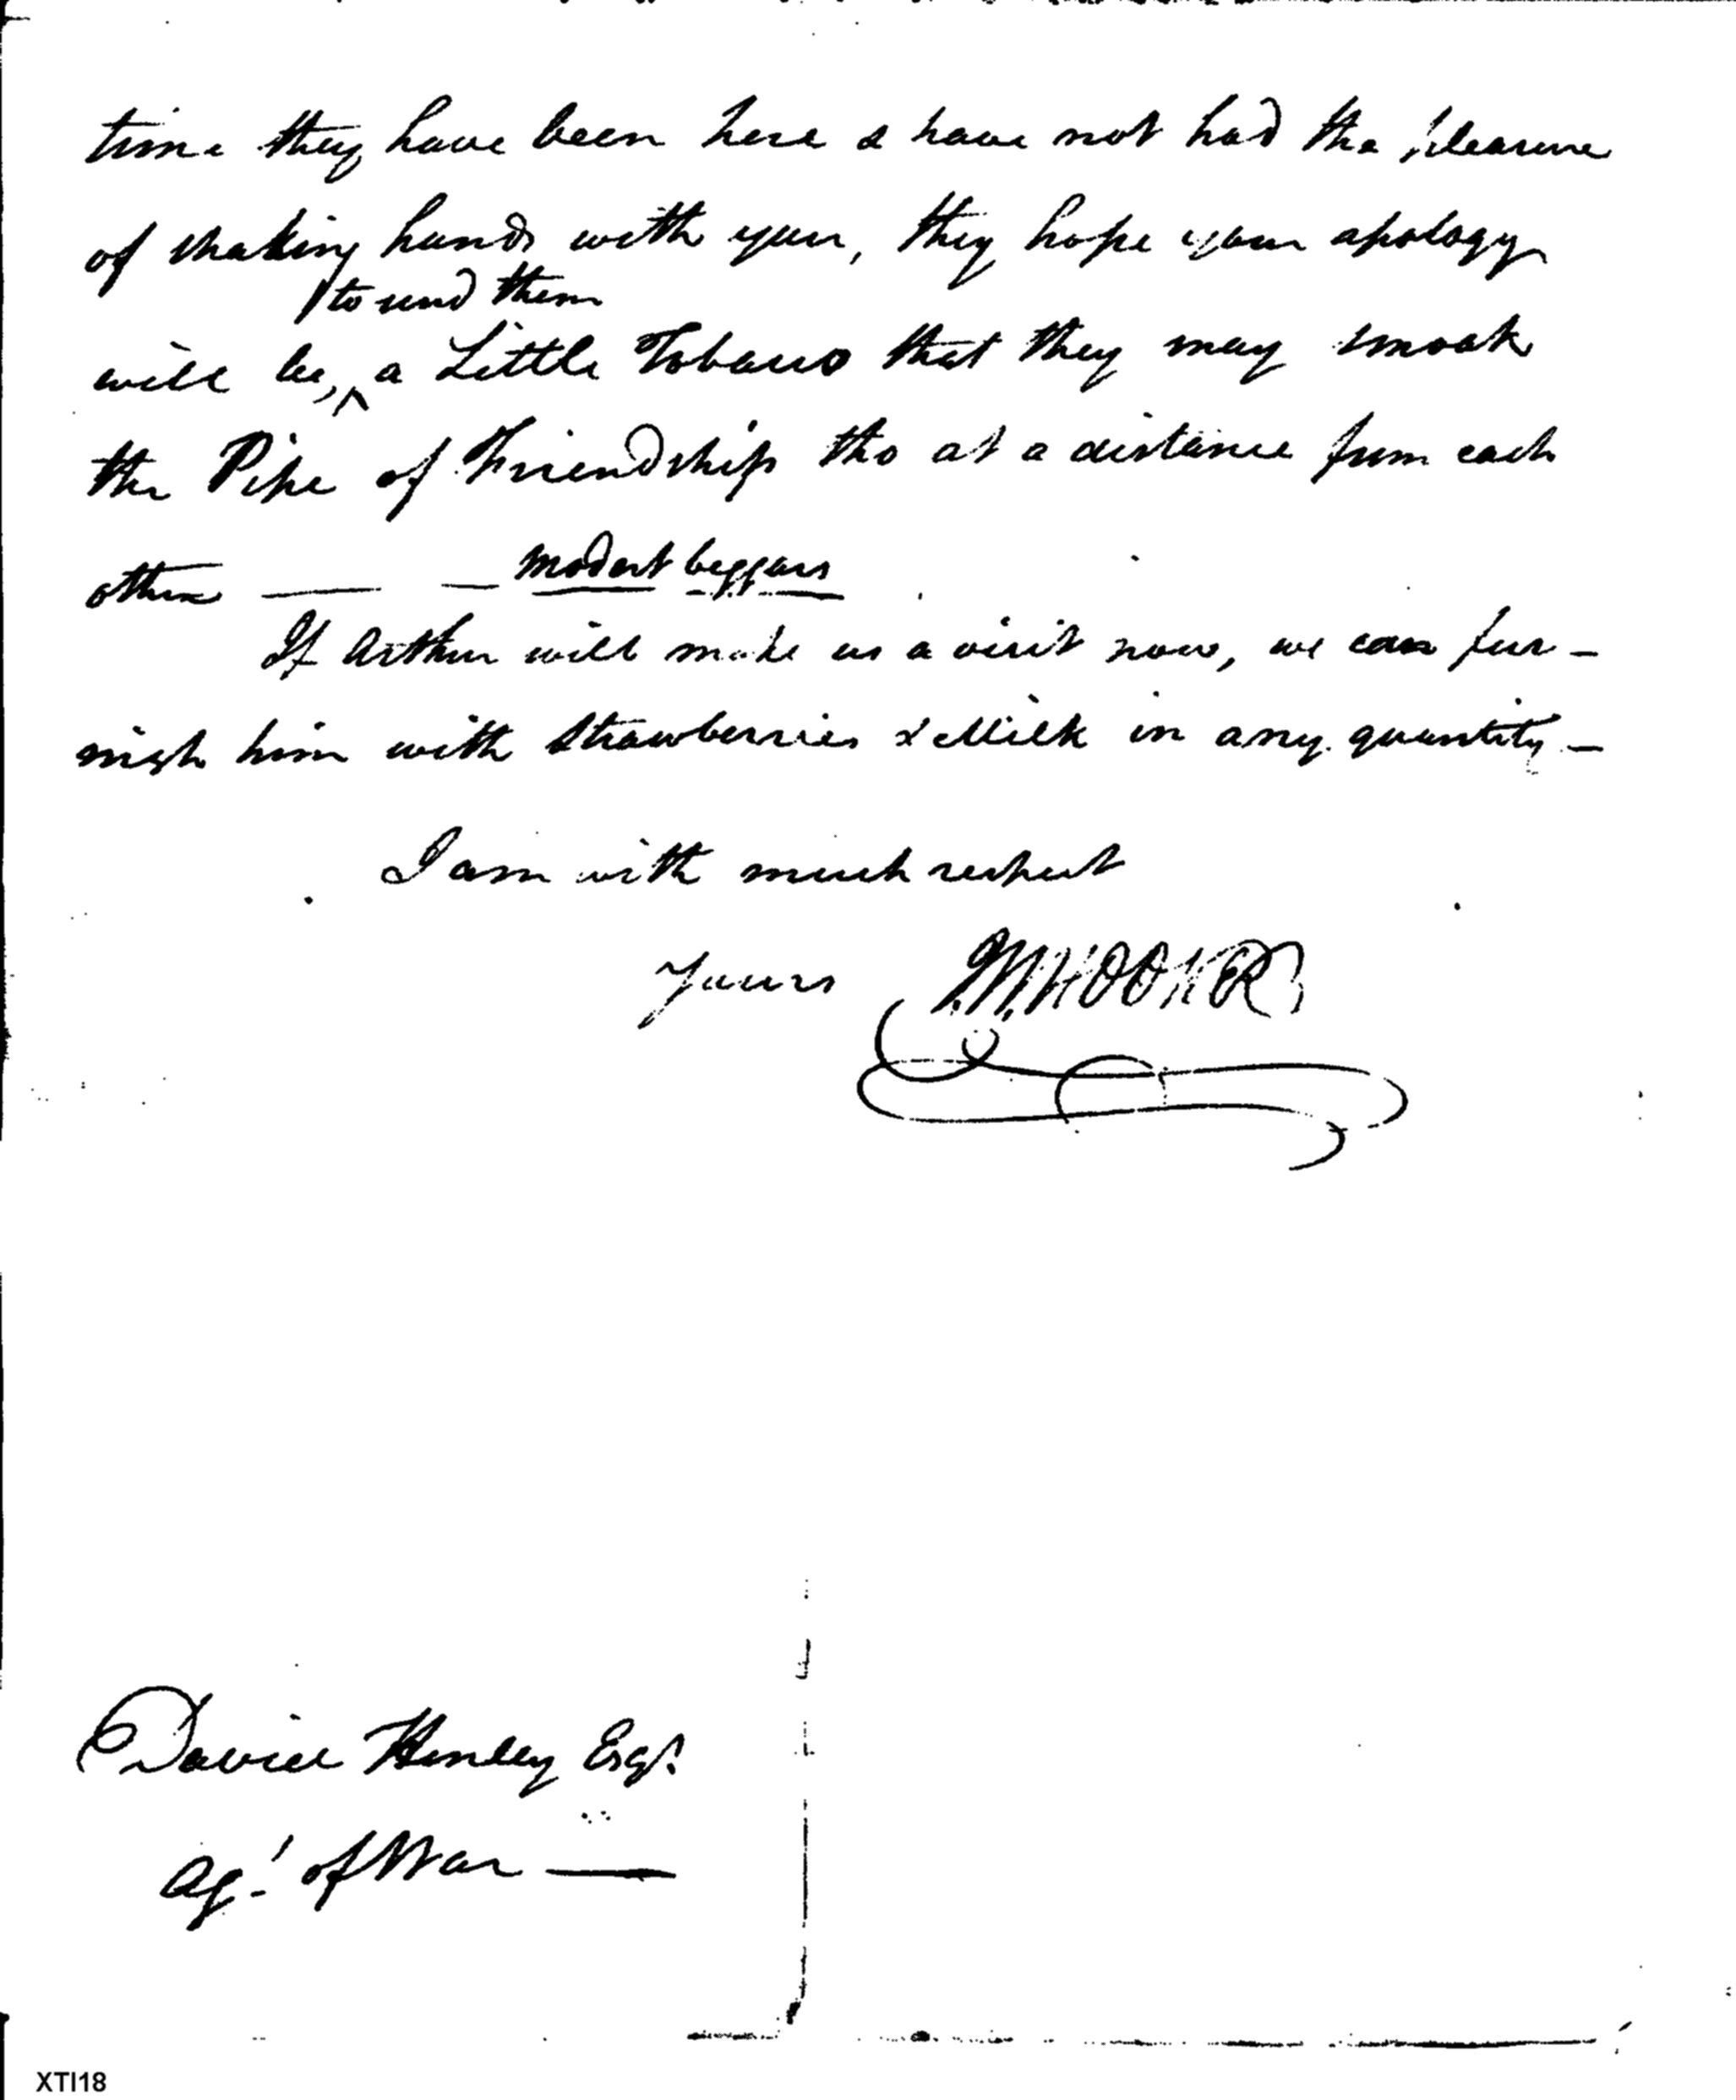 time they have been here & have not had the pleasure
of shaking hands with you, they hope your apology
to send them
will be, ^ a Little Tobacco that they may smoak
the Pipe of Friendship tho at a distance from each
other — — modest beggars
If Arthur will make us a visit now, we can fur-
nish him with Strawberries & Milk in any quantity —
I am with much respect
Yours M. HOOKER
David Henley Esqr.
Agt. of War —
XTI18